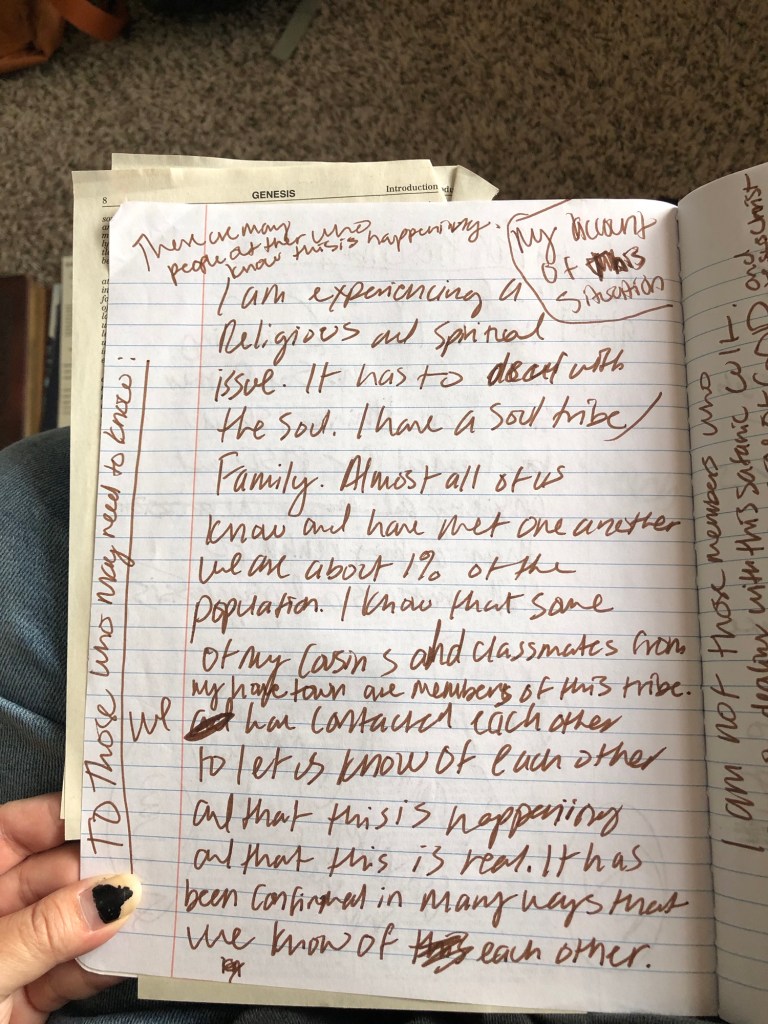 8 GENESIS Introduction
There are many
people out there who
know this is happening.
My account
of this
situation
TO Those who may need to know:
I am experiencing a
Religious and Spiritual
issue. It has to deal with
the soul. I have a soul tribe/
Family. Almost all of us
know and have met one another
we are about 1% of the
population. I know that some
of my cousins and classmates from
my home town are members of this tribe.
We have contacted each other
to let us know of each other
and that this is happening
and that this is real. It has
been confirmed in many ways that
we know of each other.
I am not those members who
dealing with this satanic cult. and